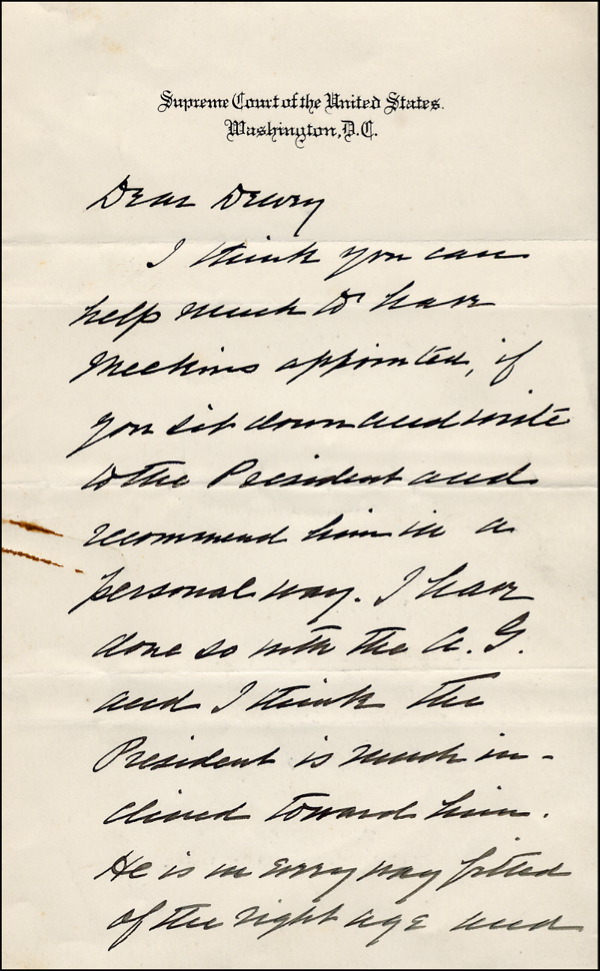 Supreme Court of the United States.
Washington, D.C.
Dear Dewey
I think you can
help much to have
Meekins appointed, if
you sit down and write
to the President and
recommend him in a
personal way. I have
done so with the A. G.
and I think the
President is much in-
clined toward him.
He is in every way fitted
of the right age and